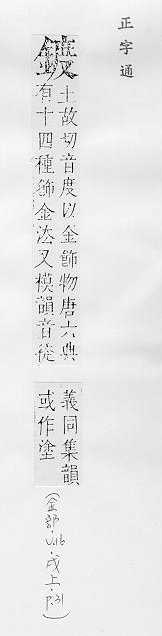 正字通
鍍
土故切音度以金飾物唐六典
有十四種飾金法又模韻音徒
義同集韻
或作塗
(金部·V.16·戌上·P.31)